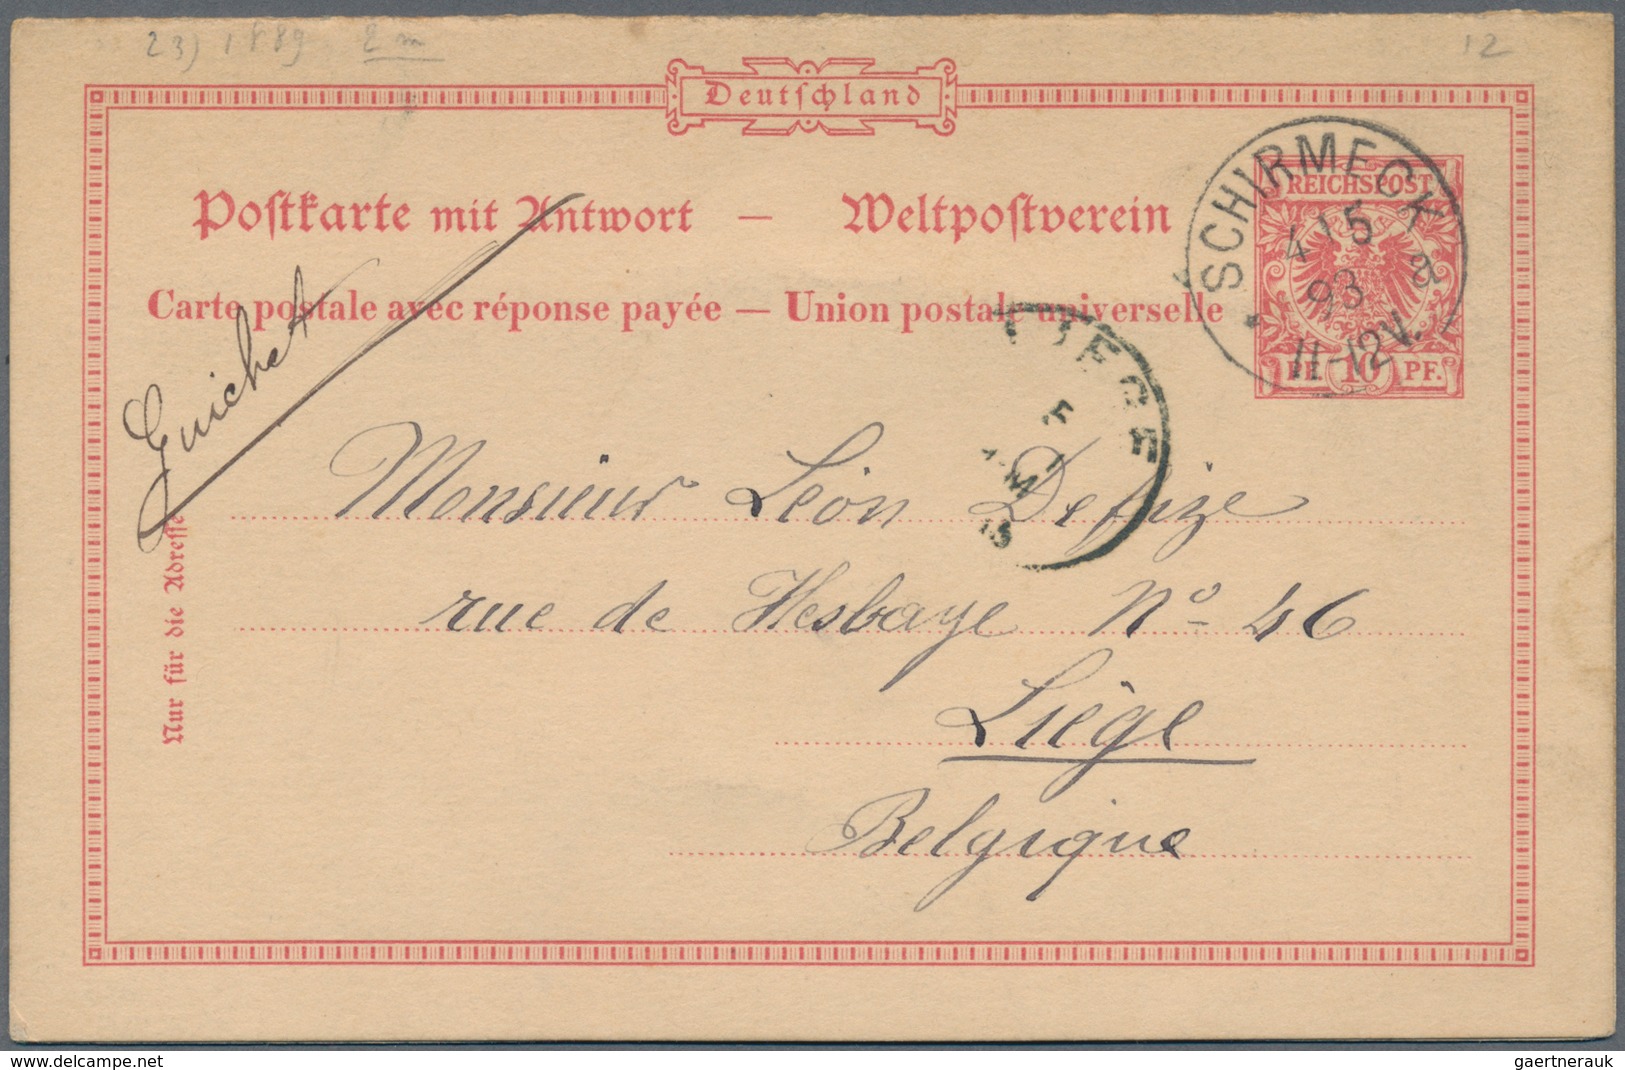 23) 1889 2 m
12
Deutschland
Postkarte mit Antwort — Weltpostverein
Carte postale avec réponse payée — Union postale universelle
SCHIRMECK
a
4 5
93
11-12V.
REICHSPOST
PF. 10 PF.
Guichet
LIEGE
Nur für die Adresse
Monsieur Léon Defize
rue de Hesbaye No 46
Liège
Belgique
www.delcampe.net
gaertnerauk